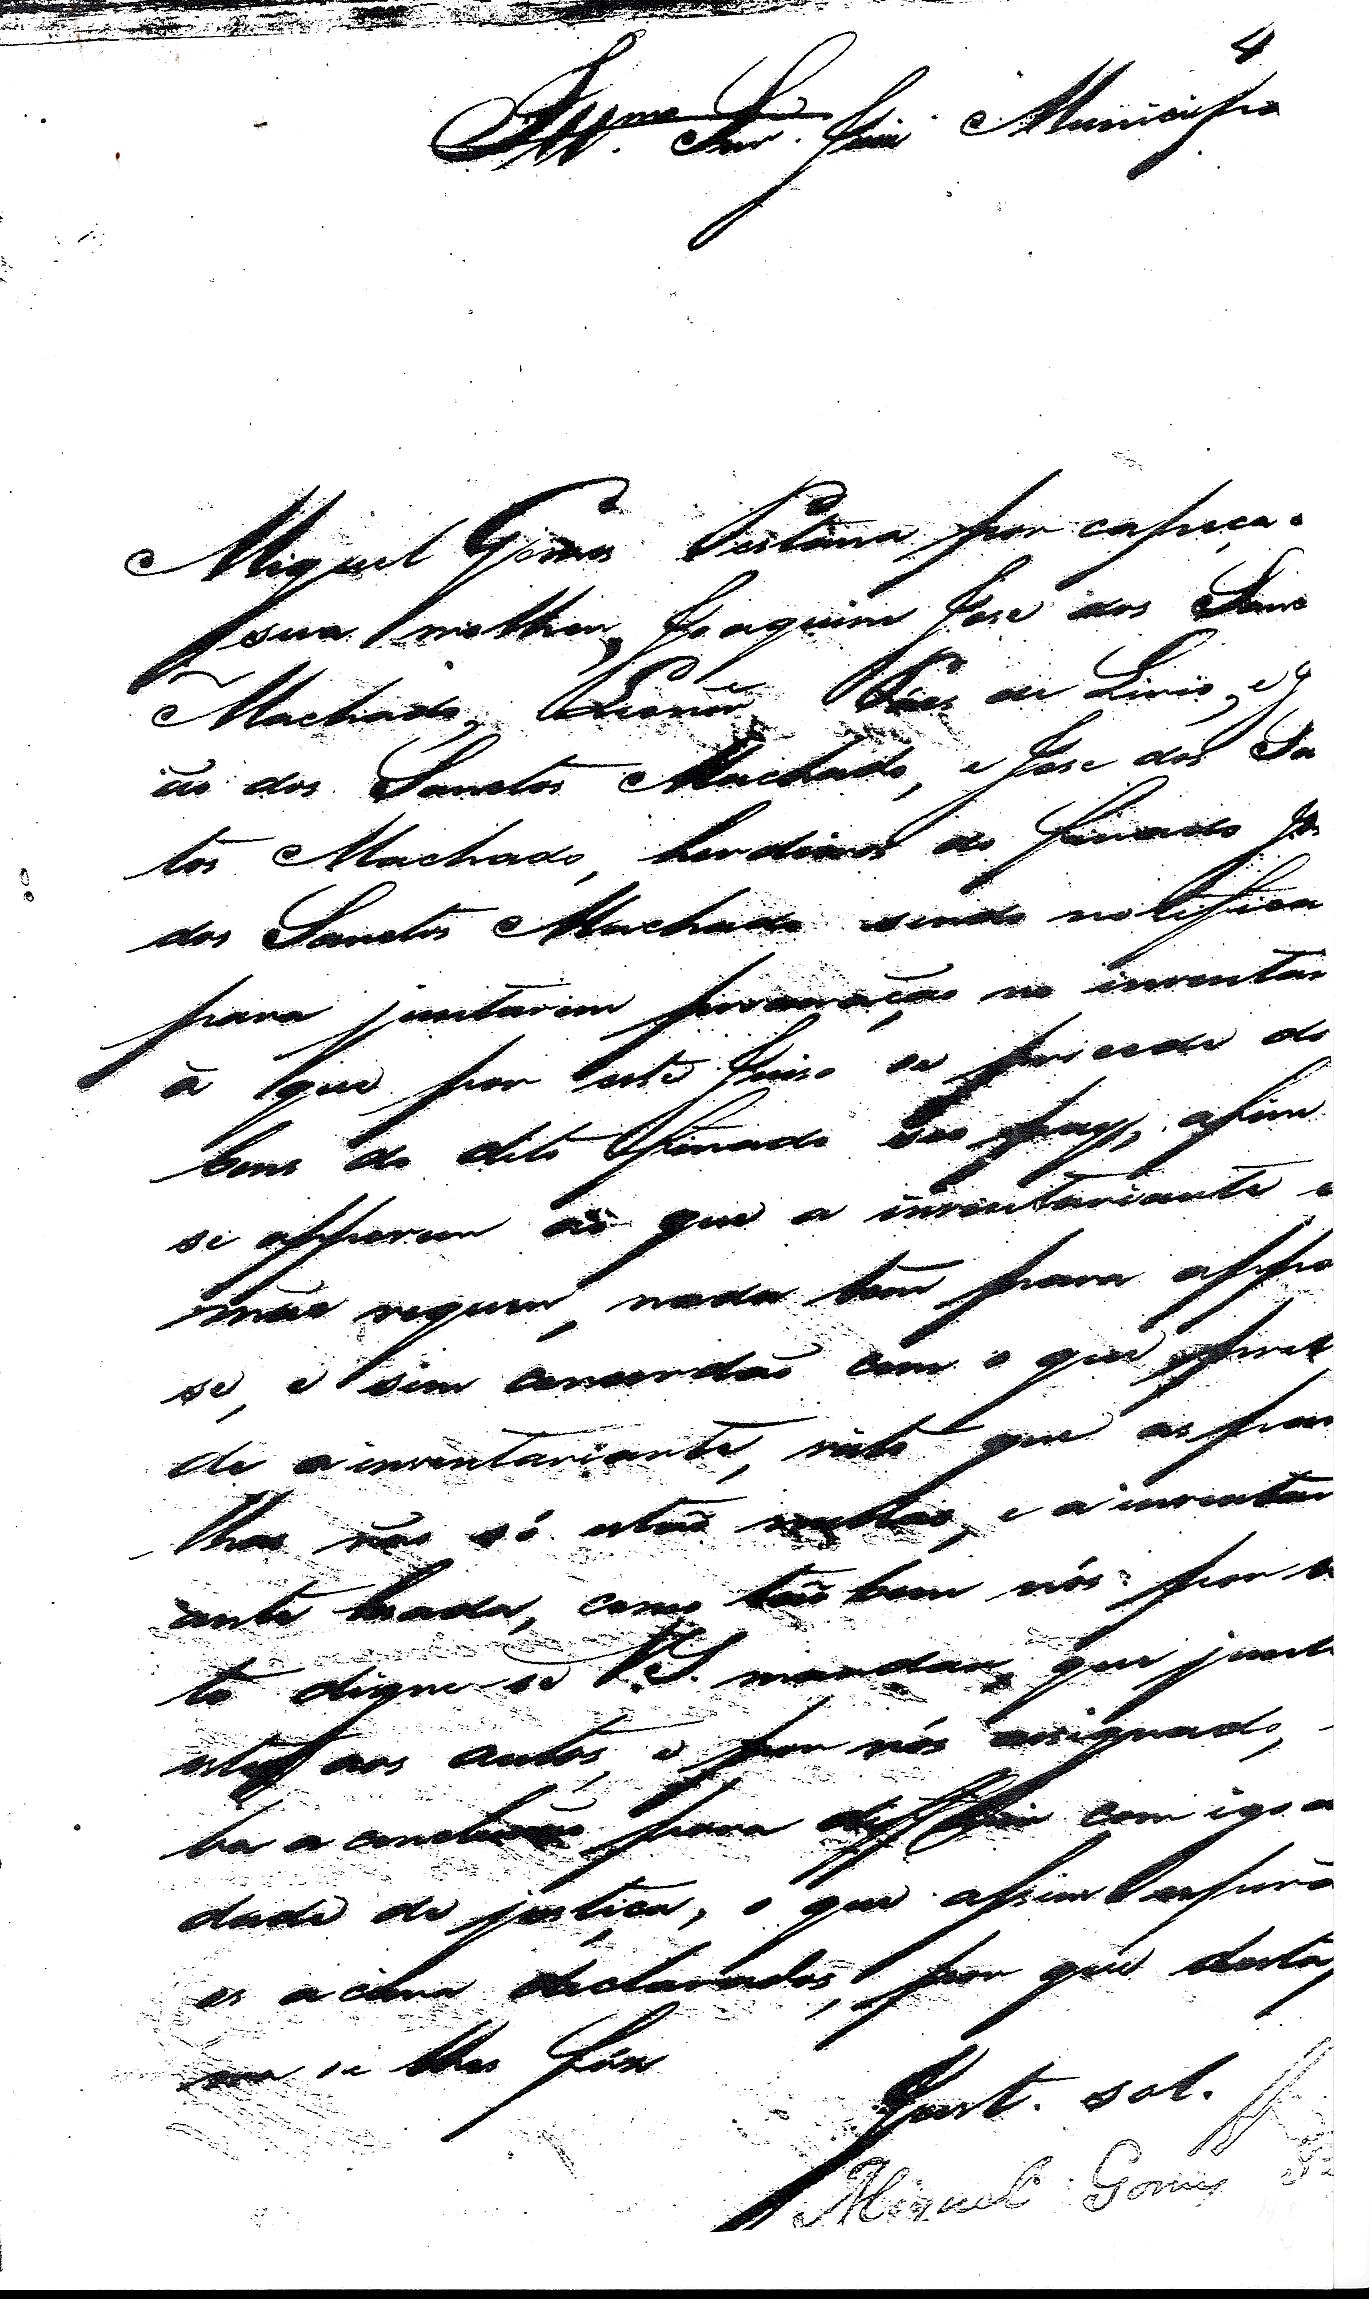 4
Illmo. Snr. Juiz Municipa
Miguel Gomes Pestana por cabeça
sua molher, Joaquim Jose dos San
Machado, Leonor de Livio, e J
ão dos Sanctos Machado, e Jose dos Sa
tos Machado, herdeiros do finado Jos
dos Sanctos Machado sendo notifica
para juntarem procuração no inventar
à que por este Juizo se procede do
bens do dito finado seo pay, afim
se opporem ao que a inventariante e
mãe requer, nada tem para oppo
se, e sim concordão com o que preten
de a inventariante, visto que as par
lhas não só estão e a inventari
ante lezada, como tão bem nós: por ta
to digne-se V.S. mandar, que junte
este aos autos, e por nós assignado,
ba a concluzão para com igoa
dade de justiça, o que assim
es acima declarados, por que desta
se lhes fára
Just. sol.
Miguel Gomes Pe